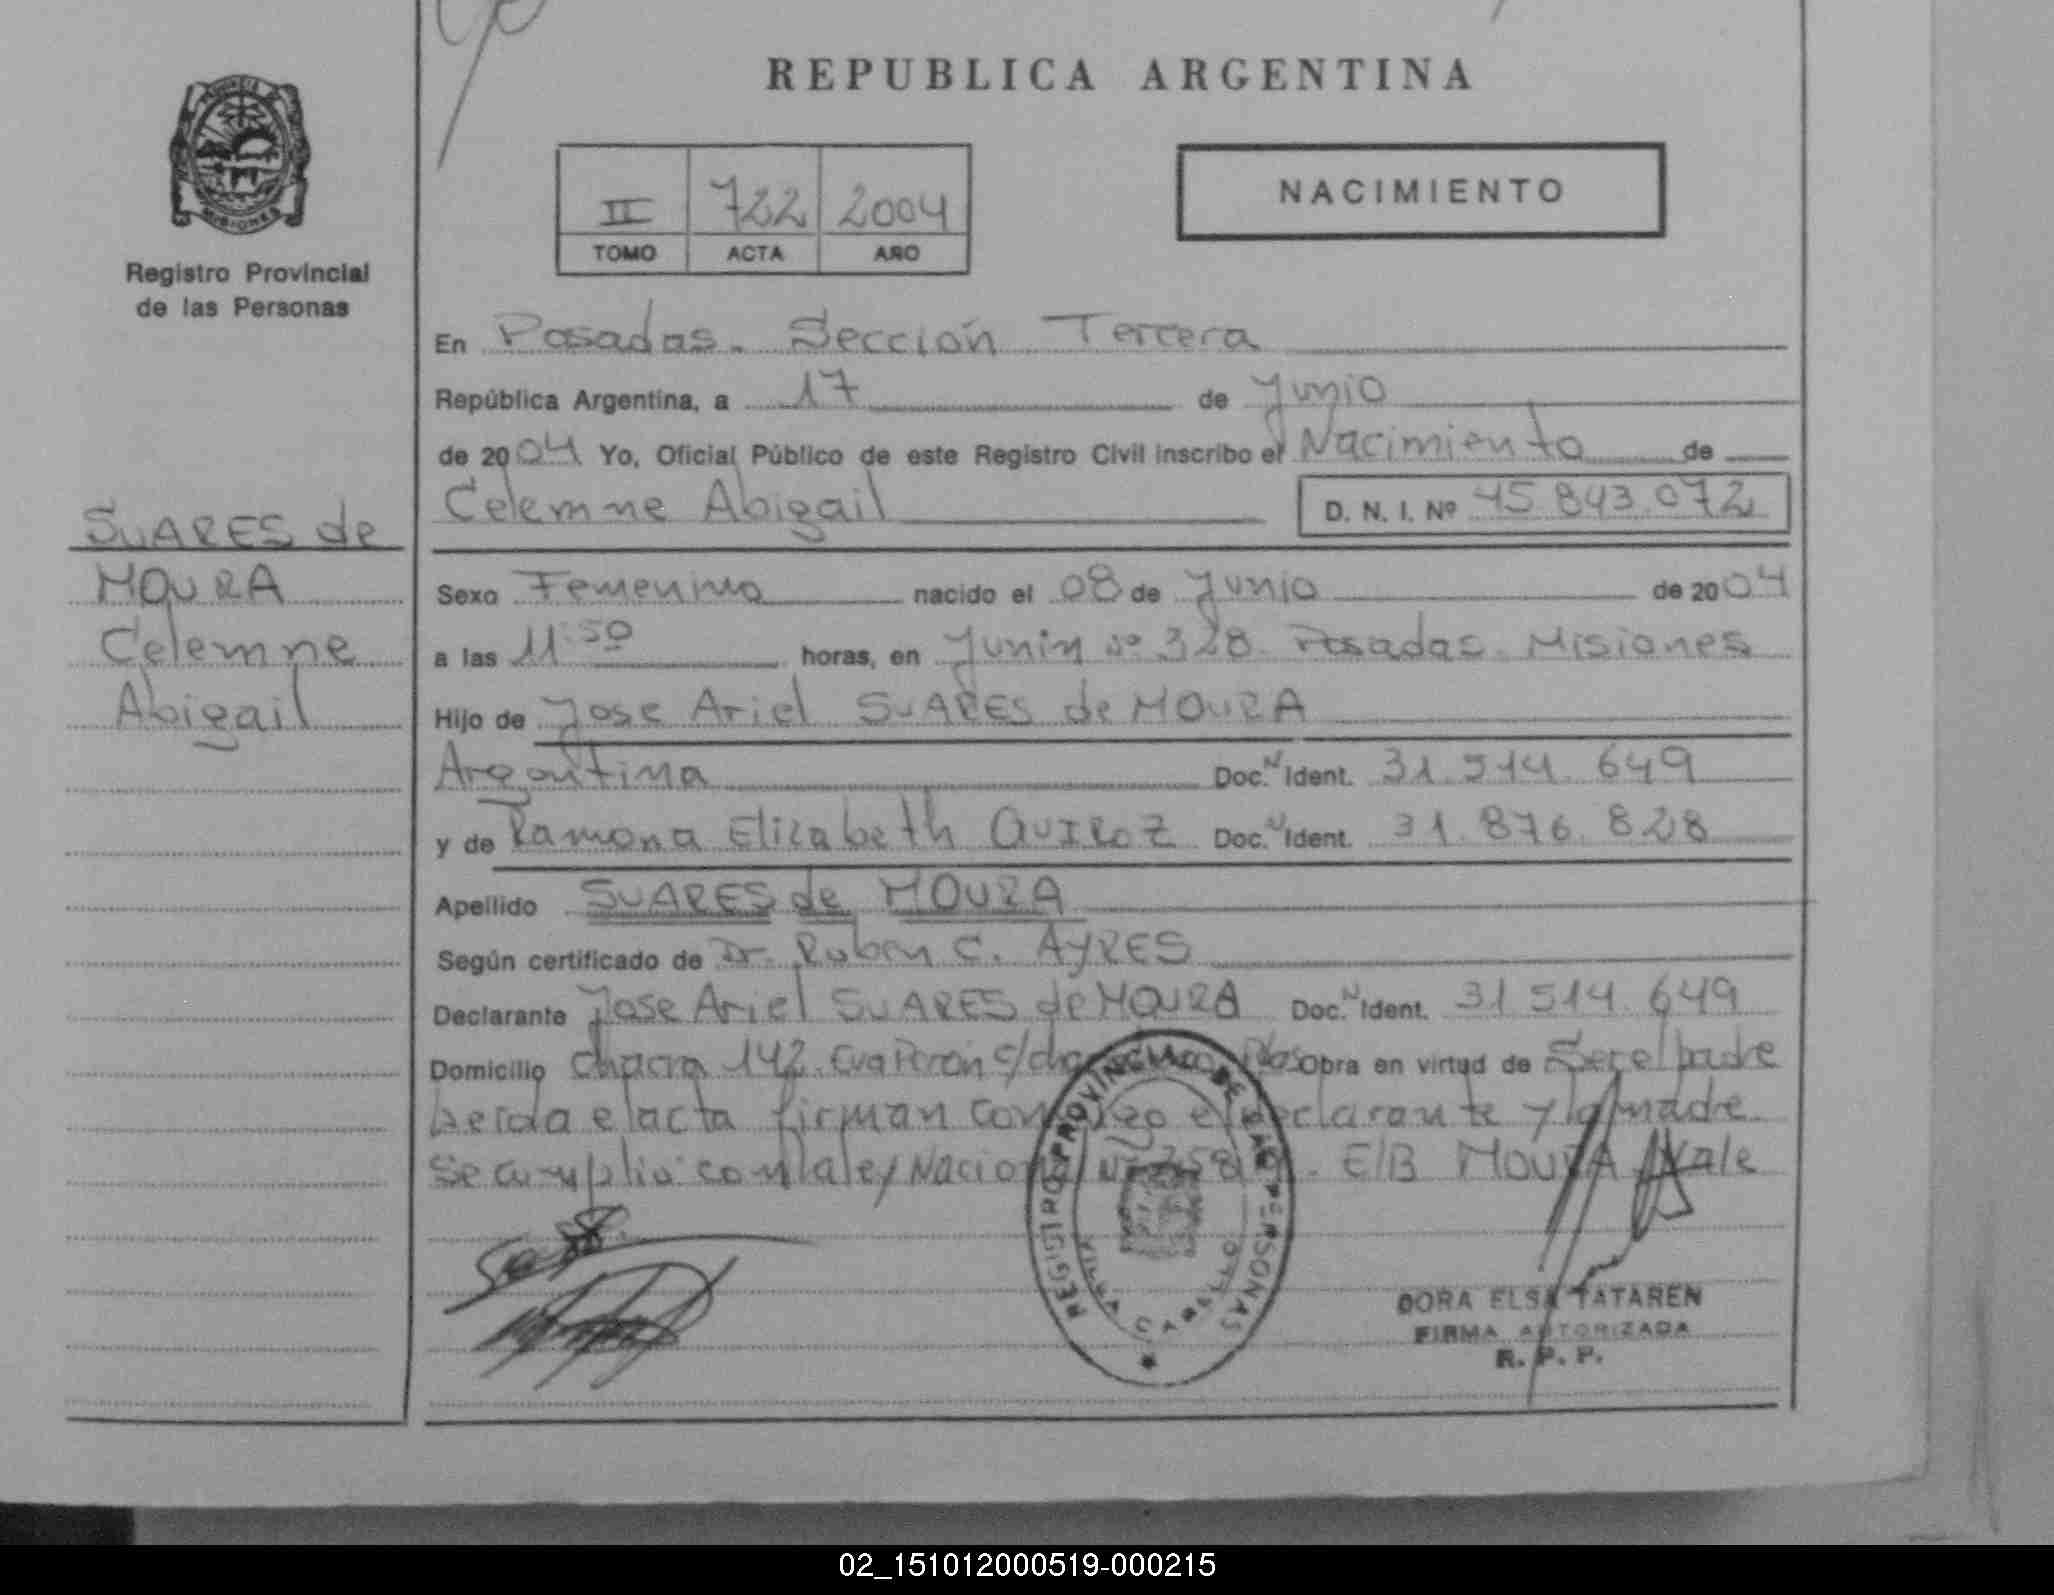 REPUBLICA ARGENTINA
PROVINCIA DE MISIONES
Registro Provincial
de las Personas
II 722 2004
TOMO ACTA AÑO
NACIMIENTO
SUARES de
MOURA
Celemne
Abigail
En Posadas. Sección Tercera
República Argentina, a 17 de Junio
de 2004 Yo, Oficial Público de este Registro Civil inscribo el Nacimiento de
Celemne Abigail D. N. I. Nº 45.843.072
Sexo Femenino nacido el 08 de Junio de 2004
a las 11:50 horas, en Junin Nº 328. Posadas. Misiones
Hijo de Jose Ariel SUARES de MOURA
Argentina Doc. N Ident. 31.514.649
y de Ramona Elizabeth QUIROZ Doc. N Ident. 31.876.828
Apellido SUARES de MOURA
Según certificado de Dr. Ruben C. AYRES
Declarante Jose Ariel SUARES de MOURA Doc. N Ident. 31514.649
Domicilio Chacra 142. Eva Peron c/ Obra en virtud de Ser el padre
Leida el acta firman conmigo el declarante y la madre.
Se cumplio con la ley Nacional E/B MOURA Vale
REGISTRO PROVINCIAL DE LAS PERSONAS
VILLA CABELLO
DORA ELSA TATAREN
FIRMA AUTORIZADA
R. P. P.
02_151012000519-000215